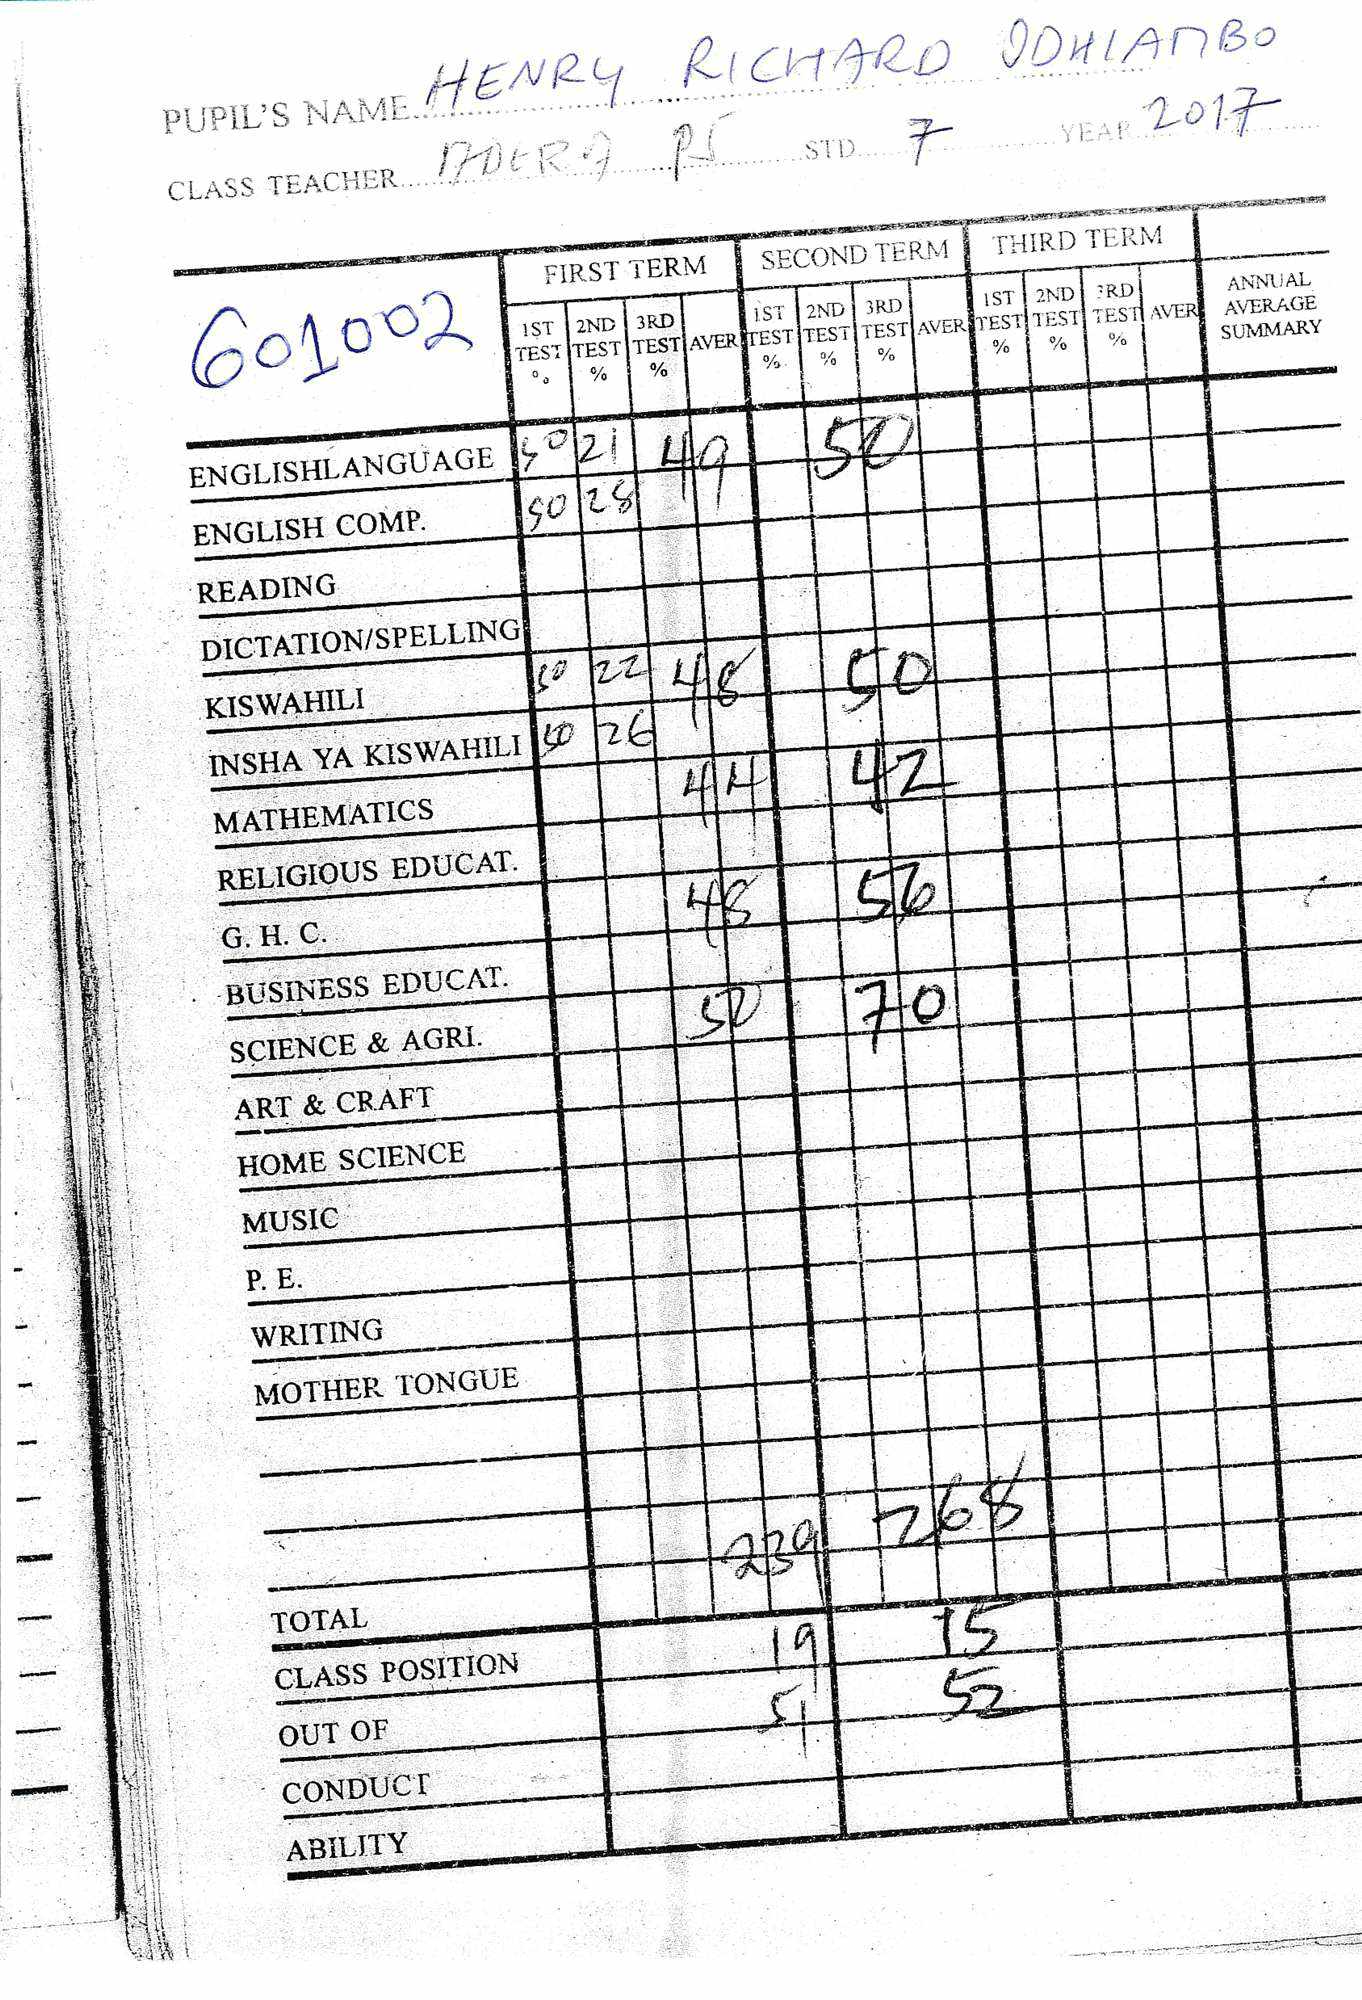 PUPIL'S NAME HENRY RICHARD ODHIAMBO
CLASS TEACHER PS STD 7 YEAR 2017
601002
FIRST TERM SECOND TERM THIRD TERM
1ST TEST % 2ND TEST % 3RD TEST % AVER 1ST TEST % 2ND TEST % 3RD TEST % AVER 1ST TEST % 2ND TEST % 3RD TEST % AVER ANNUAL AVERAGE SUMMARY
ENGLISHLANGUAGE 50 21 49 50
ENGLISH COMP. 50 28
READING
DICTATION/SPELLING
KISWAHILI 50 22 48 50
INSHA YA KISWAHILI 50 26
MATHEMATICS 44 42
RELIGIOUS EDUCAT.
G. H. C. 48 56
BUSINESS EDUCAT.
SCIENCE & AGRI. 50 70
ART & CRAFT
HOME SCIENCE
MUSIC
P. E.
WRITING
MOTHER TONGUE
TOTAL 239 268
CLASS POSITION 19 15
OUT OF 51 52
CONDUCT
ABILITY